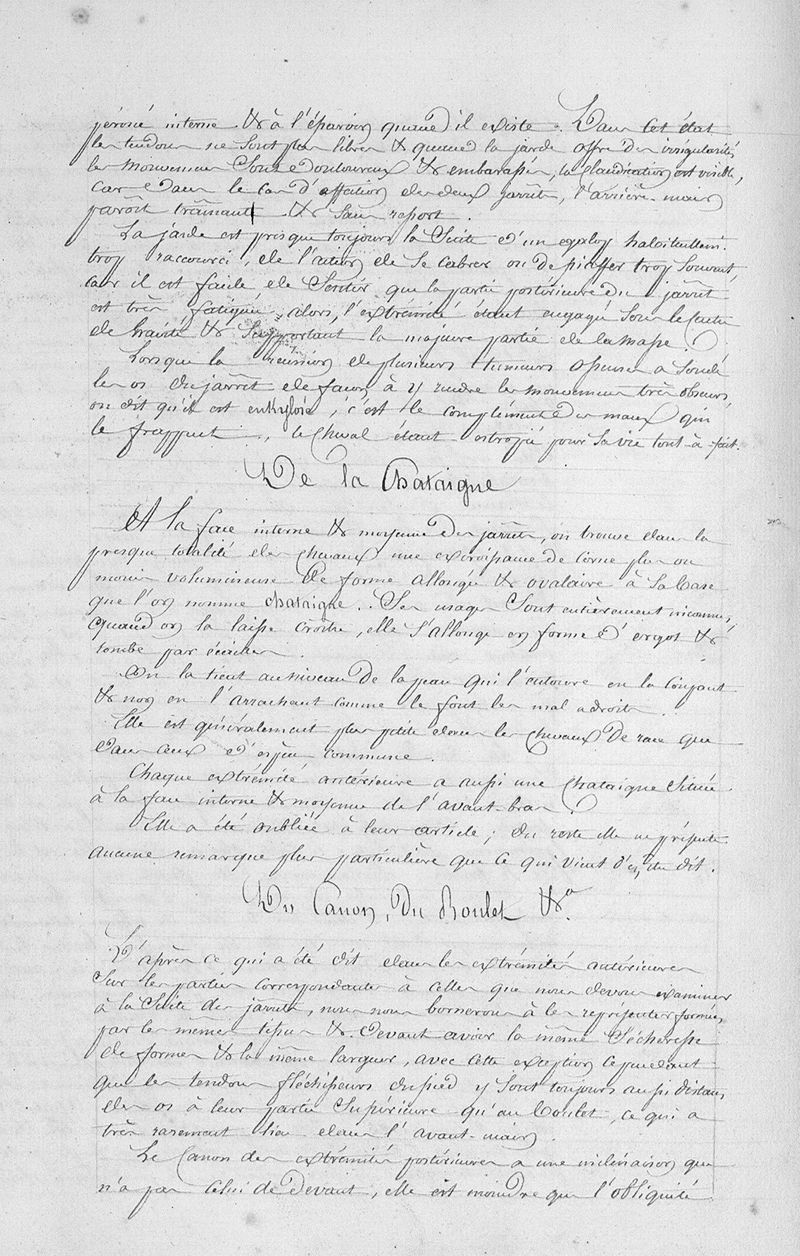 péroné interne & à l'éparvin quand il existe. Dans cet état
les tendons ne sont plus libres & quand la jarde offre des irrégularités,
les mouvemens sont douloureux & embarassés, la claudication est visible,
car dans le cas d'affection des deux jarrets, l'arrière-main
paroit traînant & sans report.
La jarde est presque toujours la suite d'un exploy habituellem.t
trop raccourci, de l'action de se cabrer ou de piaffer trop souvent,
car il est facile de sentir que la partie postérieure du jarret
est très fatiguée, alors, l'extrémité étant engagée sous le centre
de gravité & supportant la majeure partie de la masse.
Lorsque la réunion de plusieurs tumeurs osseuses a soudé
les os du jarret de façon à y rendre les mouvemens très obscurs,
on dit qu'il est enkylosé, c'est le complément des maux qui
le frappent, le cheval étant estropié pour sa vie tout-à-fait.
De la Chataigne
A la face interne & moyenne des jarrets, on trouve dans la
presque totalité des chevaux une excroissance de corne plus ou
moins volumineuse de forme allongée & ovalaire à sa base
que l'on nomme chataigne. Ses usages sont entièrement inconnus,
quand on la laisse croître, elle s'allonge en forme d'ergot &
tombe par écailles.
On la tient au niveau de la peau qui l'entoure en la coupant
& non en l'arrachant comme le font les mal adroits.
Elle est généralement plus petite dans les chevaux de race que
dans ceux d'espèce commune.
Chaque extrémité antérieure a aussi une chataigne située
à la face interne & moyenne de l'avant-bras.
Elle a été oubliée à leur article; du reste elle ne présente
aucune remarque plus particulière que ce qui vient d'en être dit.
Du Canon, du Boulet &.a
D'après ce qui a été dit dans les extrémités antérieures
sur les parties correspondantes à celles que nous devons examiner
à la suite des jarrets, nous nous bornerons à les représenter formées
par les mêmes tissus & devant avoir la même sécheresse
de formes & la même largeur, avec cette exception cependant
que les tendons fléchisseurs du pied y sont toujours aussi distans
des os à leur partie supérieure qu'au boulet, ce qui a
très rarement lieu dans l'avant-main.
Le Canon des extrémités postérieures a une inclinaison que
n'a pas celui de devant, elle est moindre que l'obliquité